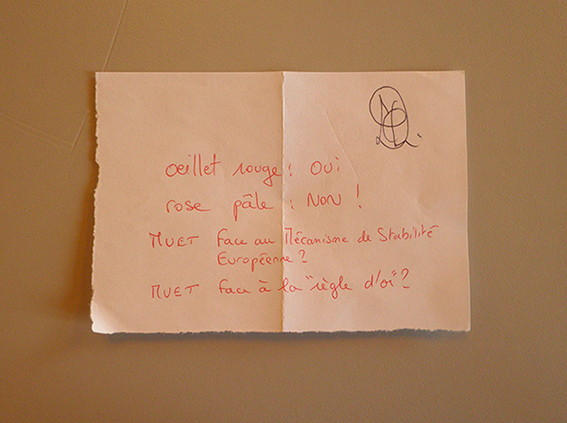 œillet rouge : Oui
rose pâle : Non !
MUET face au Mécanisme de Stabilité
Européenne ?
MUET face à la "règle d'or" ?